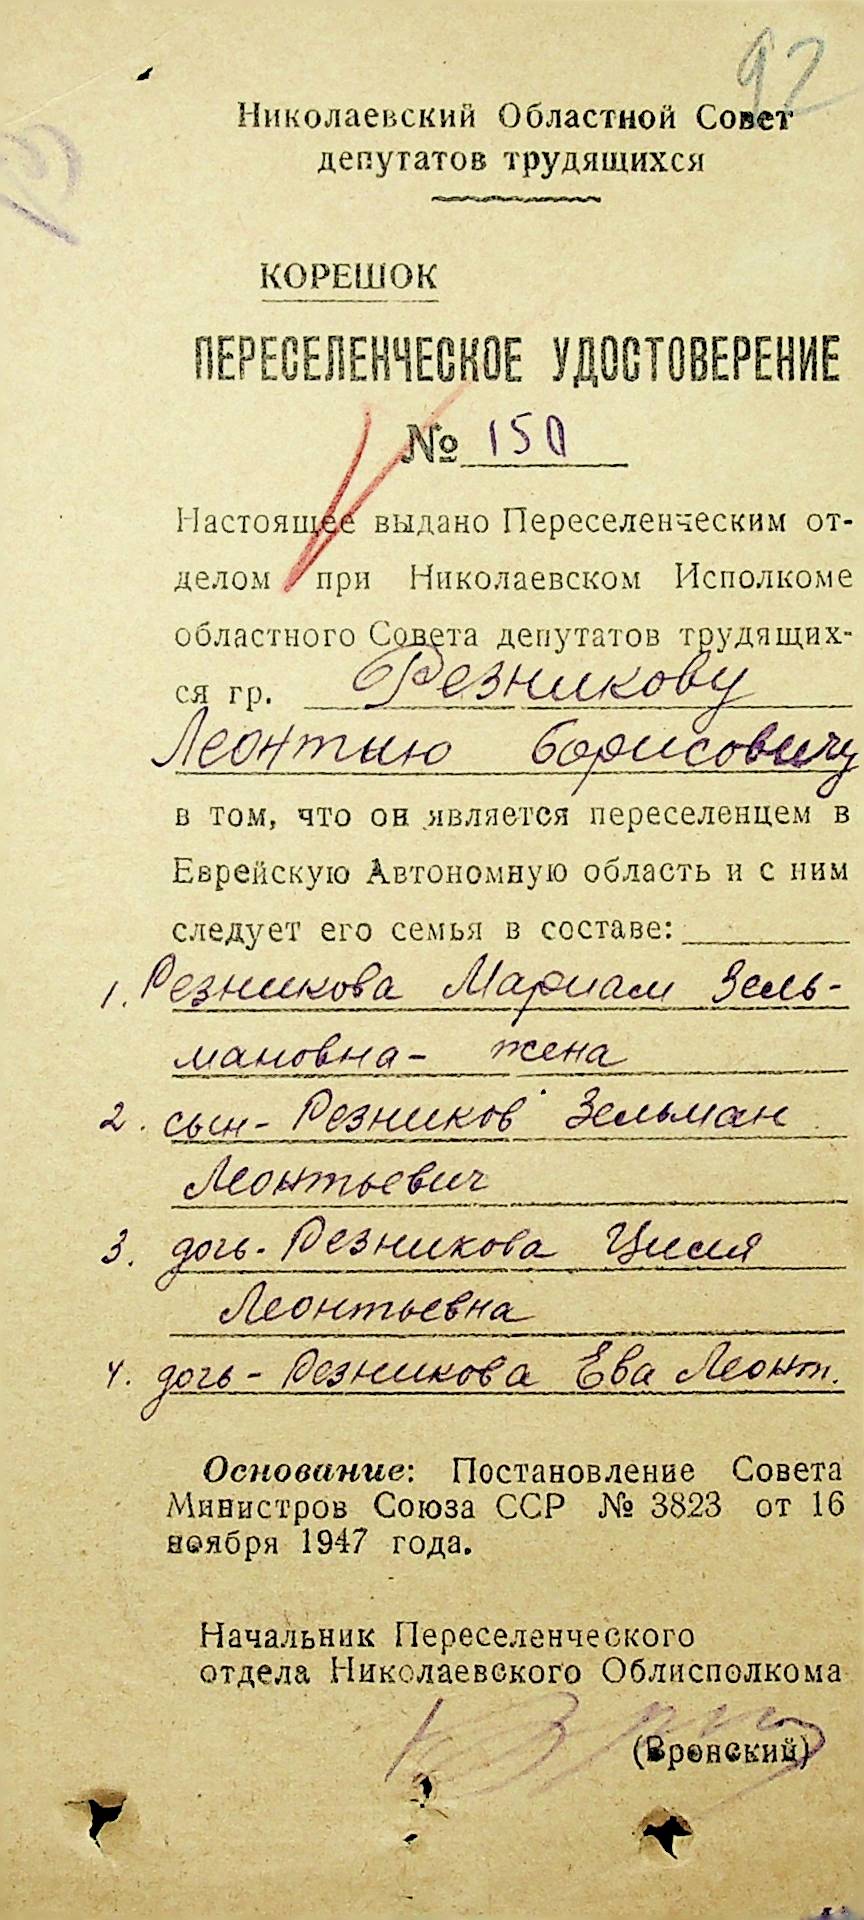 92
Николаевский Областной Совет
депутатов трудящихся
КОРЕШОК
ПЕРЕСЕЛЕНЧЕСКОЕ УДОСТОВЕРЕНИЕ
№ 150
Настоящее выдано Переселенческим от-
делом при Николаевском Исполкоме
областного Совета депутатов трудящих-
ся гр. Резникову
Леонтию Борисовичу
в том, что он является переселенцем в
Еврейскую Автономную область и с ним
следует его семья в составе:
1. Резникова Мариам Зель-
мановна - жена
2. сын - Резников Зельман
Леонтьевич
3. дочь - Резникова Циля
Леонтьевна
4. дочь - Резникова Ева Леонт.
Основание: Постановление Совета
Министров Союза ССР № 3823 от 16
ноября 1947 года.
Начальник Переселенческого
отдела Николаевского Облисполкома
(Вронский)